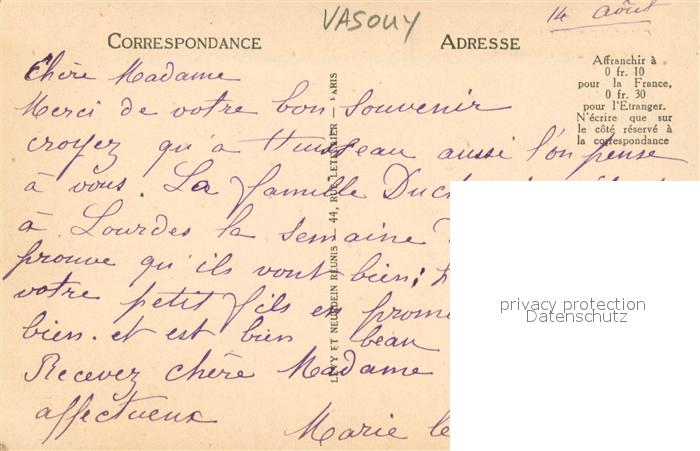 VASOUY
14 Août
CORRESPONDANCE
ADRESSE
Affranchir à
0 fr. 10
pour la France,
0 fr. 30
pour l'Etranger.
N'écrire que sur
le côté réservé à
la correspondance
LEVY ET NEURDEIN REUNIS — 44, RUE LETELLIER — PARIS
Chère Madame
Merci de votre bon souvenir
croyez qu'à aussi l'on pense
à vous. La famille
à Lourdes la semaine
prouve qu'ils vont bien;
votre petit fils en
bien. et est bien beau
Recevez chère Madame
affectueux
Marie le
privacy protection
Datenschutz